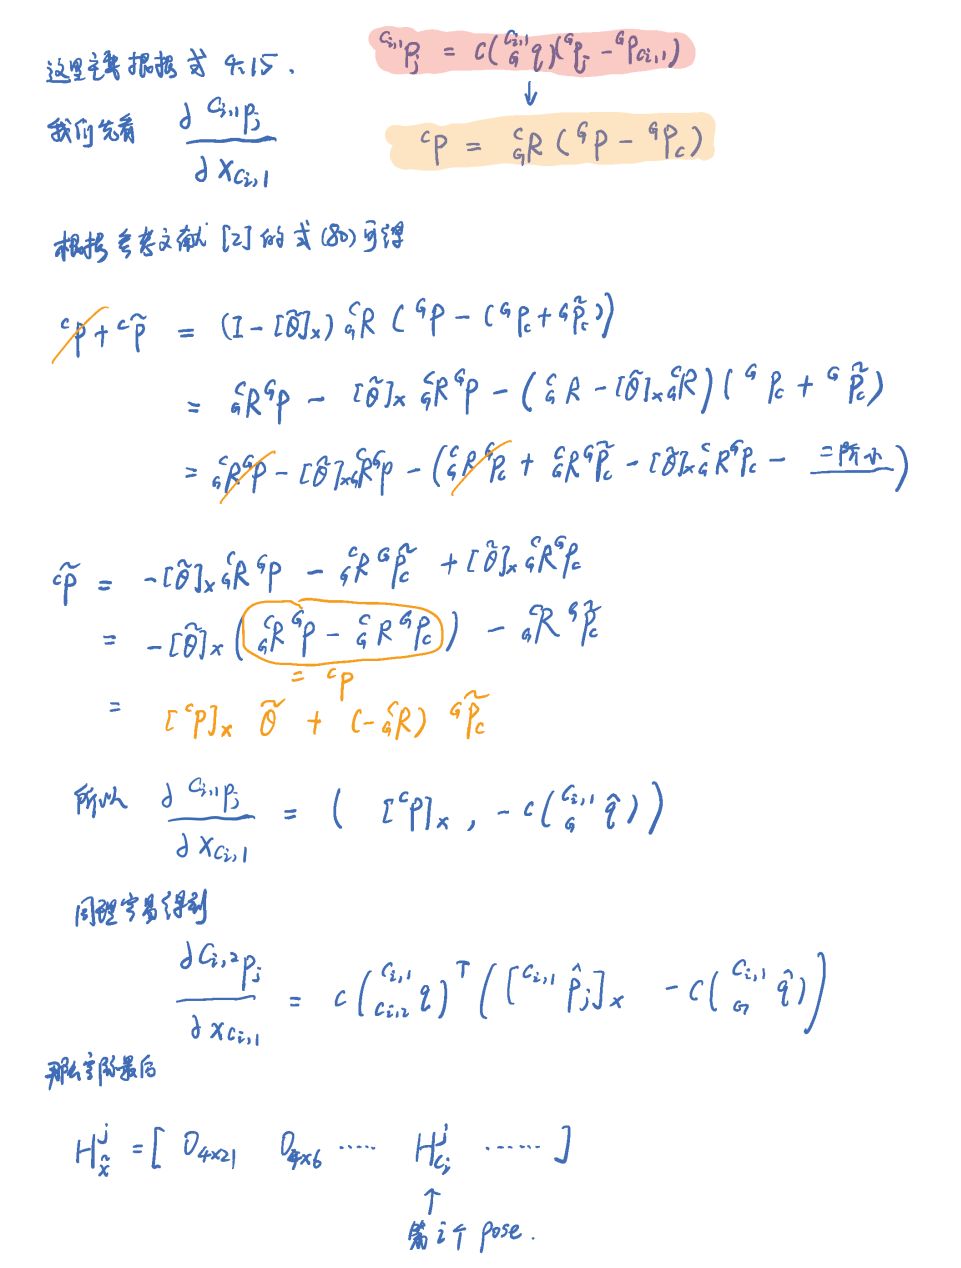 这里主要根据式 4.15.
^{C_{i,1}}p_j = C(^{C_{i,1}}_G q)(^G p_j - ^G p_{C_{i,1}})
↓
我们先看 ∂ ^{C_{i,1}}p_j / ∂ x_{C_{i,1}}
^C p = ^C_G R (^G p - ^G p_c)
根据参考文献 [2] 的式(80)可得
^C p + ^C p̃ = (I - [θ̃]_×) ^C_G R (^G p - (^G p_c + ^G p̃_c))
= ^C_G R ^G p - [θ̃]_× ^C_G R ^G p - (^C_G R - [θ̃]_× ^C_G R)(^G p_c + ^G p̃_c)
= ^C_G R ^G p - [θ̃]_× ^C_G R ^G p - (^C_G R ^G p_c + ^C_G R ^G p̃_c - [θ̃]_× ^C_G R ^G p_c - 二阶小)
^C p̃ = -[θ̃]_× ^C_G R ^G p - ^C_G R ^G p̃_c + [θ̃]_× ^C_G R ^G p_c
= -[θ̃]_× (^C_G R ^G p - ^C_G R ^G p_c) - ^C_G R ^G p̃_c
= ^C p
= [^C p]_× θ̃ + (-^C_G R) ^G p̃_c
所以 ∂ ^{C_{i,1}}p_j / ∂ x_{C_{i,1}} = ( [^C p]_× , - C(^{C_{i,1}}_G q̂) )
同理容易得到
∂ ^{C_{i,2}}p_j / ∂ x_{C_{i,1}} = C(^{C_{i,1}}_{C_{i,2}} q)^T ([^{C_{i,1}} p̂_j]_× - C(^{C_{i,1}}_G q̂))
那么实际最后
H^j_{x̃} = [ 0_{4×21} 0_{4×6} ⋯⋯ H^j_{C_i} ⋯⋯ ]
↑
第 i 个 pose.